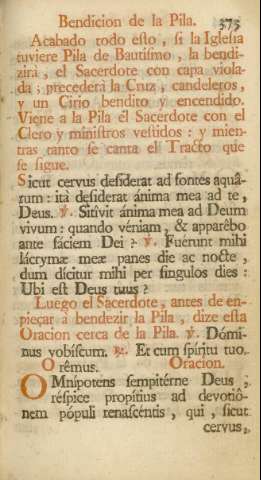 Bendicion de la Pila. 373
Acabado todo esto, si la Iglesia
tuviere Pila de Bautismo, la bendi-
zirá, el Sacerdote con capa viola-
da; precederá la Cruz, candeleros,
y un Cirio bendito y encendido.
Viene a la Pila el Sacerdote con el
Clero y ministros vestidos: y mien-
tras tanto se canta el Tracto que
se sigue.
Sicut cervus desiderat ad fontes aquâ-
rum: ità desiderat ánima mea ad te,
Deus. ℣. Sitívit ánima mea ad Deum
vivum: quando véniam, & apparêbo
ante fáciem Dei? ℣. Fuérunt mihi
lácrymæ meæ panes die ac nocte,
dum dícitur mihi per singulos dies:
Ubi est Deus tuus?
Luego el Sacerdote, antes de en-
pieçar à bendezir la Pila, dize esta
Oracion cerca de la Pila. ℣. Dómi-
nus vobíscum. ℟. Et cum spíritu tuo.
Orémus. Oracion.
OMnípotens sempitérne Deus,
réspice propítius ad devotiô-
nem pópuli renascéntis, qui, sicut
cervus,